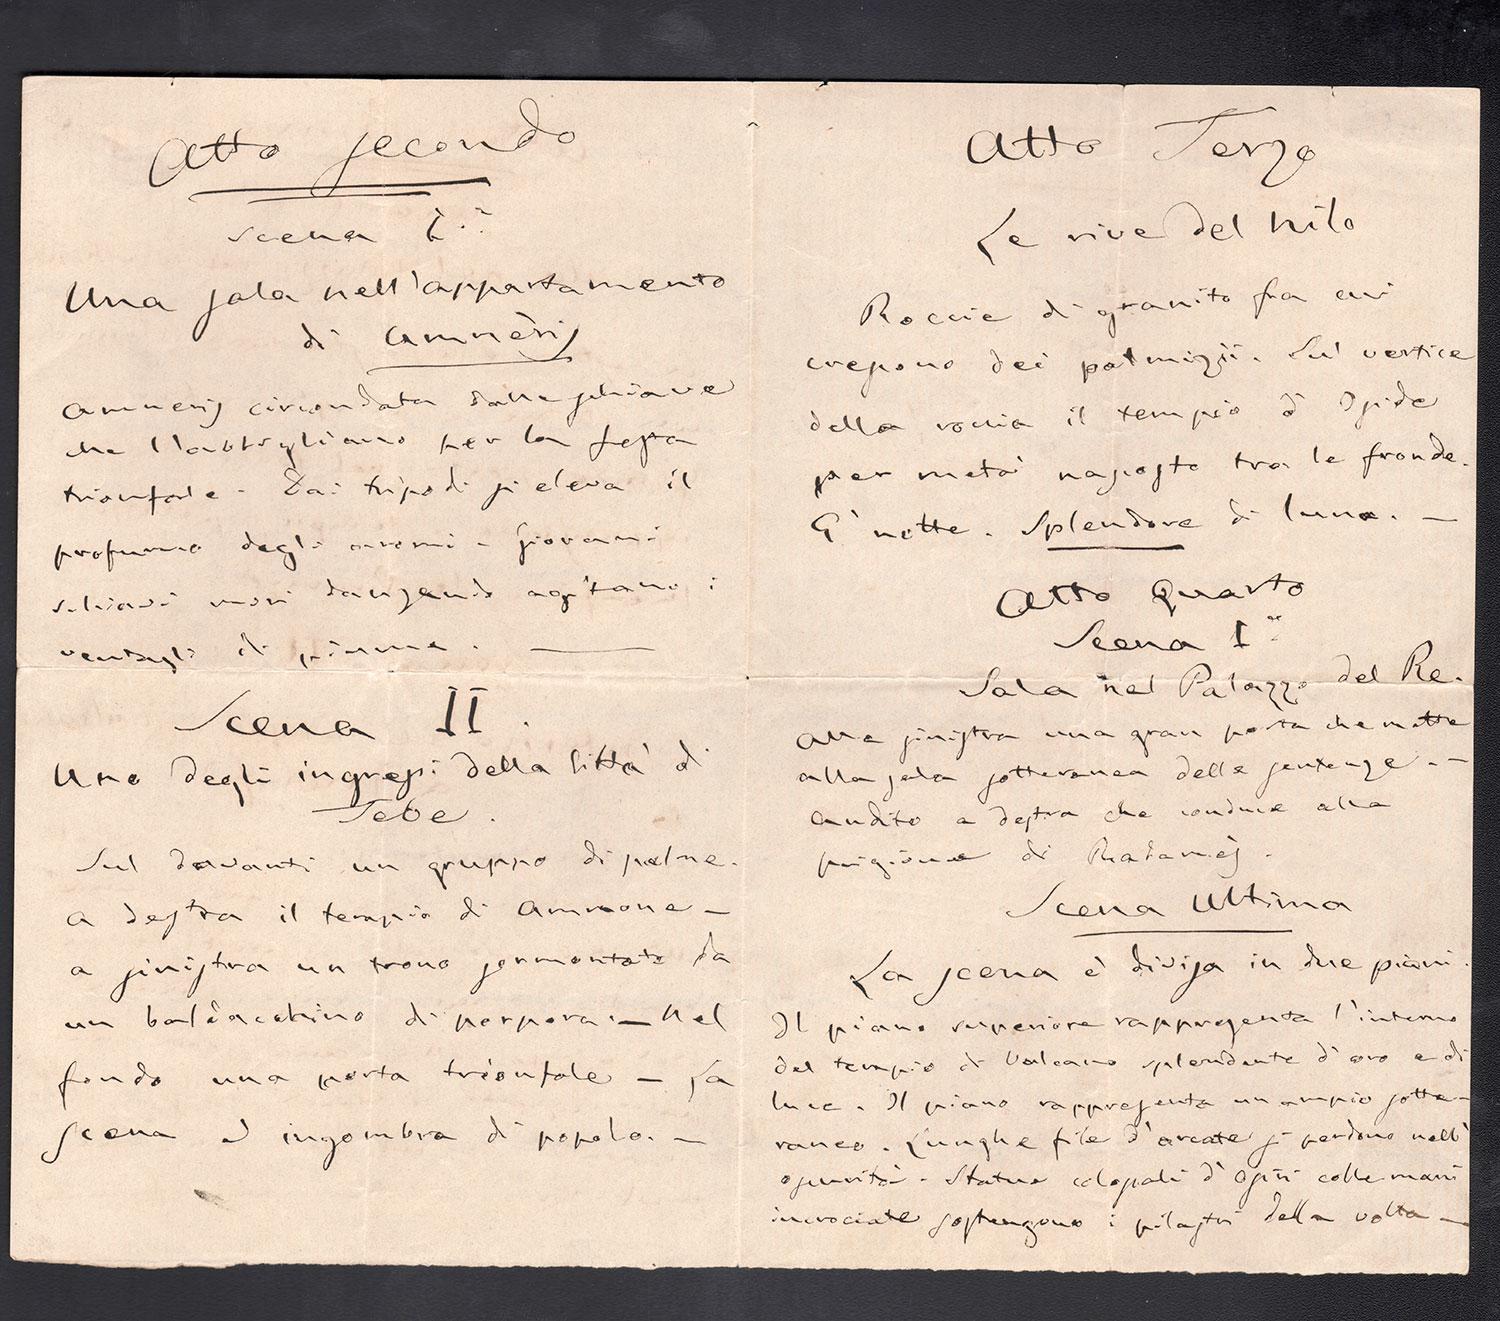 Atto secondo
Scena I.a
Una sala nell'appartamento
di Amneris
Amneris circondata dalle schiave
che l'abbigliano per la festa
trionfale. Dai tripodi si eleva il
profumo degli aromi. Giovani
schiavi mori danzando agitano i
ventagli di piume.
Scena II.
Uno degli ingressi della Città di
Tebe.
Sul davanti un gruppo di palme.
a destra il tempio di Ammone —
a sinistra un trono sormontato da
un baldacchino di porpora. — Nel
fondo una porta trionfale — La
scena è ingombra di popolo. —
Atto Terzo
Le rive del Nilo
Roccie di granito fra cui
crescono dei palmizii. Sul vertice
della roccia il tempio d'Iside
per metà nascosto tra le fronde.
E' notte. Splendore di luna. —
Atto Quarto
Scena Ia
Sala nel Palazzo del Re.
Alla sinistra una gran porta che mette
alla sala sotteranea delle sentenze. —
Andito a destra che conduce alla
prigione di Radamès.
Scena Ultima
La scena è divisa in due piani.
Il piano superiore rappresenta l'interno
del tempio di Vulcano splendente d'oro e di
luce. Il piano rappresenta un ampio sotte-
raneo. Lunghe file d'arcate si perdono nell'
oscurità. Statue colossali d'Osiri colle mani
incrociate sostengono i pilastri della volta —